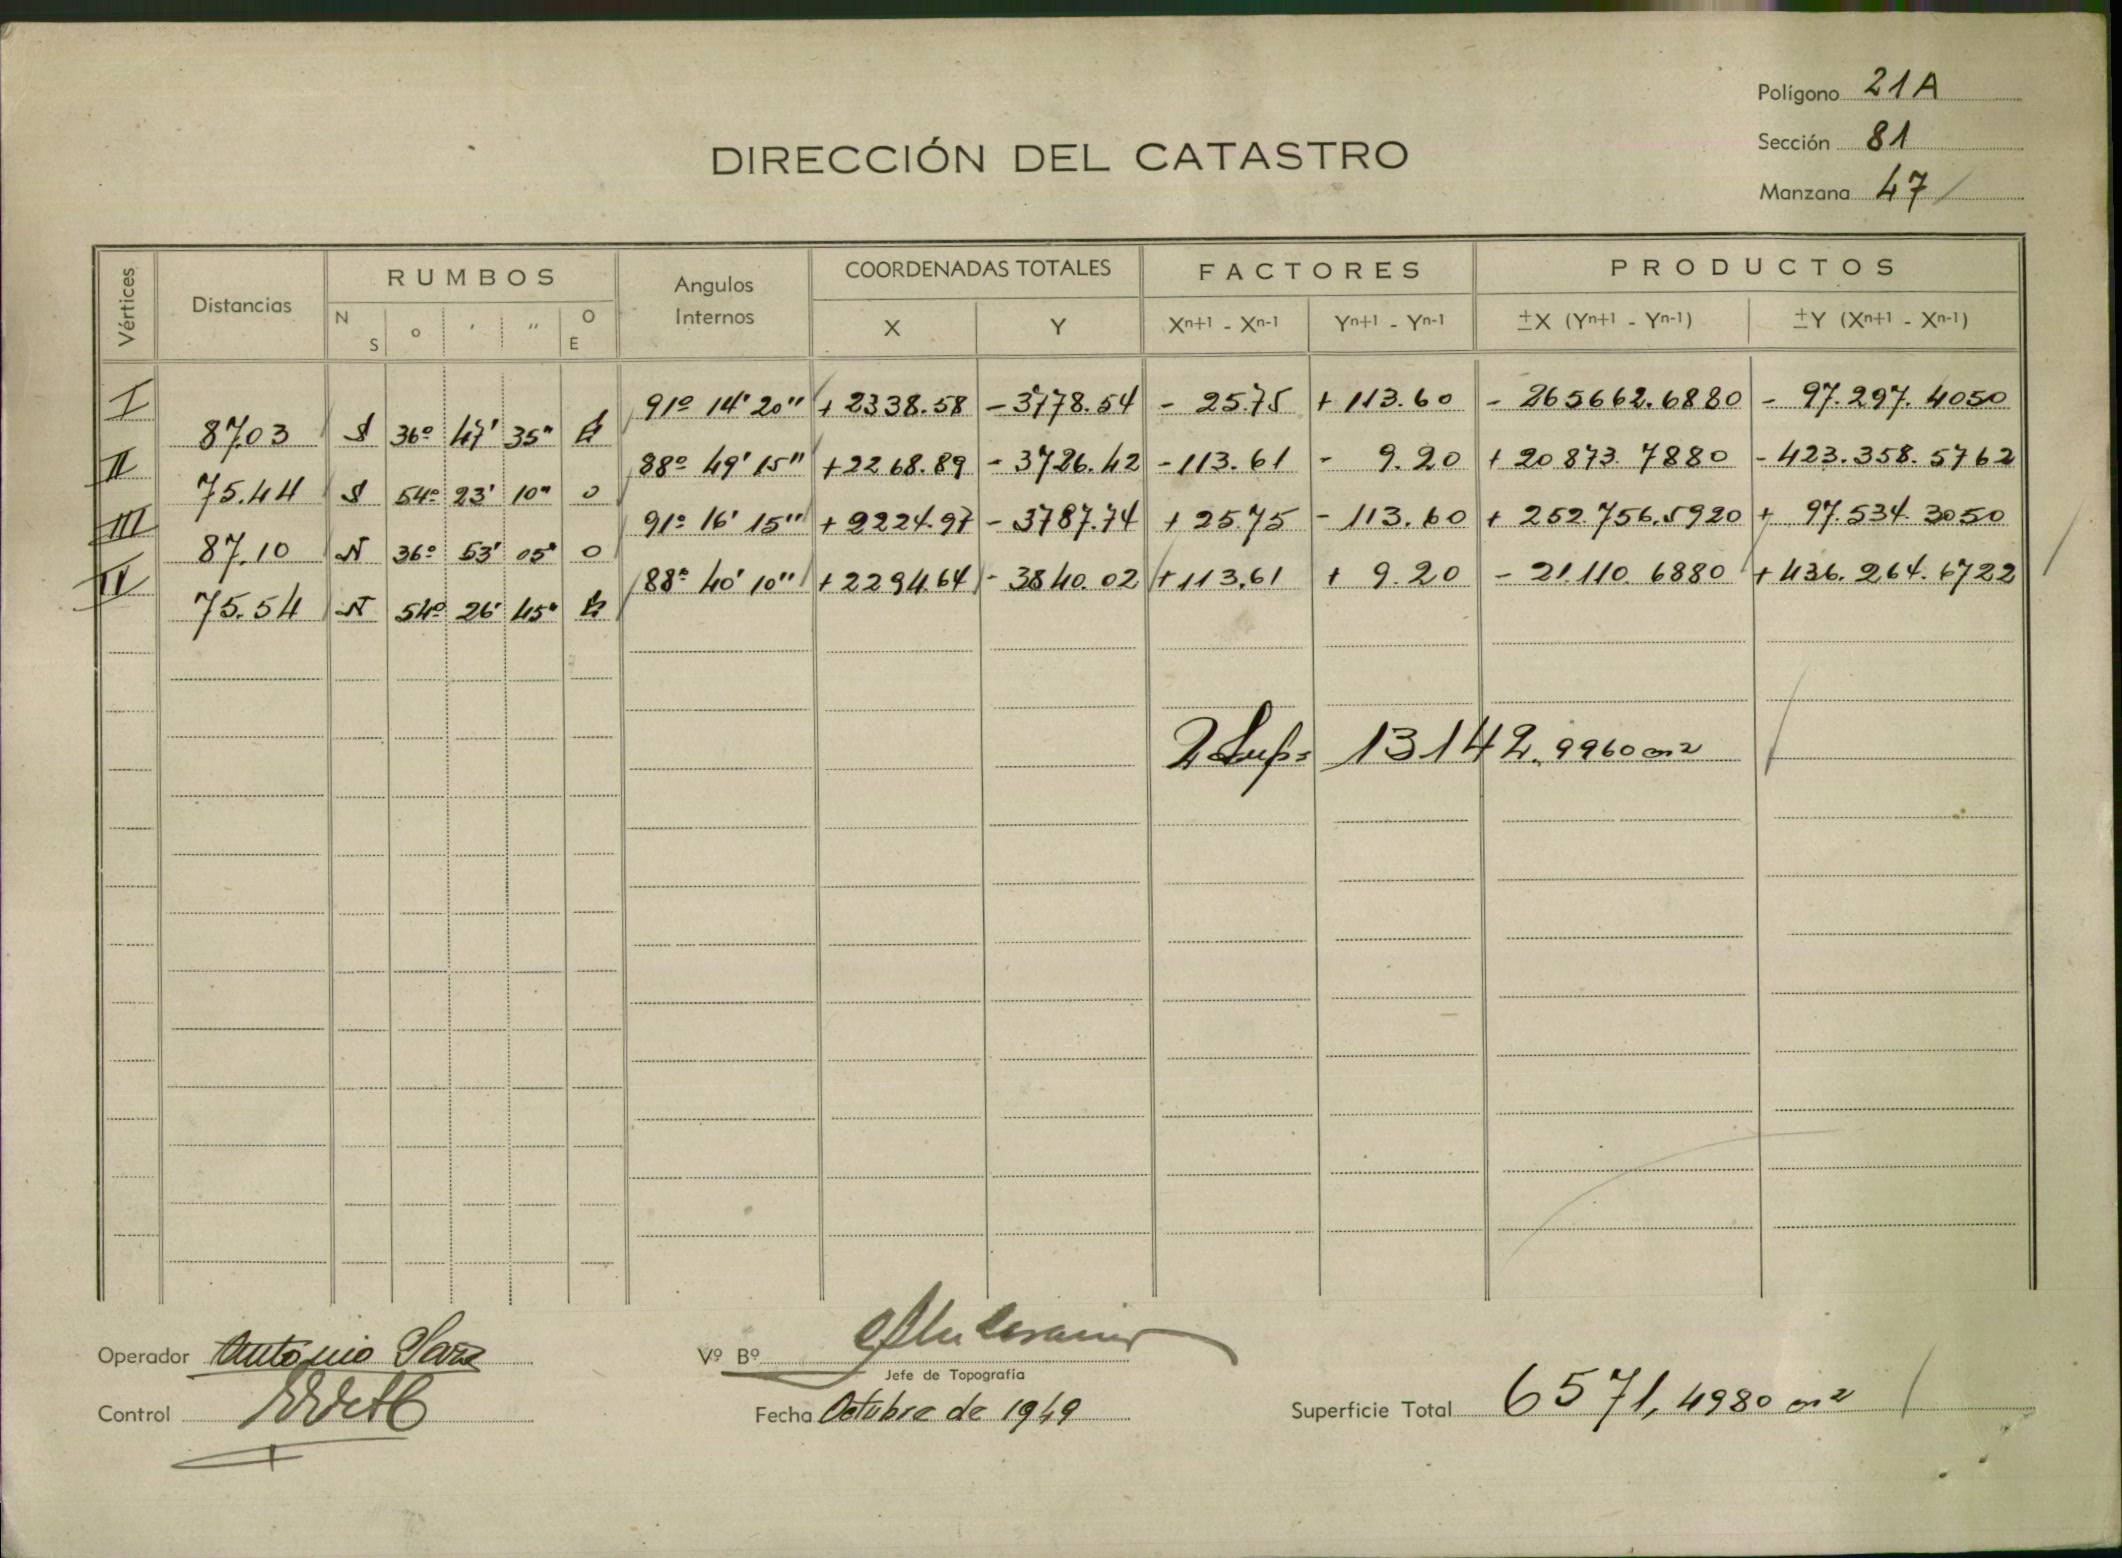 Polígono 21A
DIRECCIÓN DEL CATASTRO
Sección 81
Manzana 47
Vértices Distancias RUMBOS Angulos Internos COORDENADAS TOTALES FACTORES PRODUCTOS
N S o ' " O E X Y Xn+1 - Xn-1 Yn+1 - Yn-1 ±X (Yn+1 - Yn-1) ±Y (Xn+1 - Xn-1)
I 91º 14' 20" +2338.58 -3778.54 - 25.75 + 113.60 - 265662.6880 - 97.297.4050
87.03 S 36º 47' 35" E
II 88º 49' 15" +2268.89 - 3726.42 -113.61 - 9.20 + 20873.7880 -423.358.5762
75.44 S 54º 23' 10" O
III 91º 16' 15" +2224.97 - 3787.74 + 25.75 - 113.60 + 252.756.5920 + 97.534.3050
87.10 N 36º 53' 05" O
IV 88º 40' 10" +2294.64 - 3840.02 +113.61 + 9.20 - 21.110.6880 +436.264.6722
75.54 N 54º 26' 45" E
2 Sup= 13142.9960 m2
Operador Antonio
Vº Bº
Jefe de Topografía
Control
Fecha Octubre de 1949
Superficie Total 6571,4980 m2